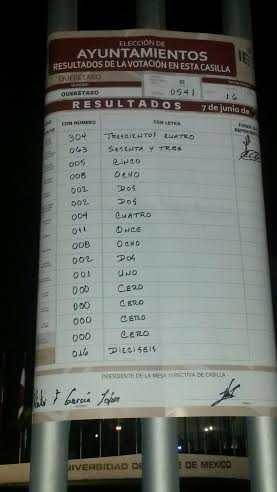 ELECCIÓN DE
AYUNTAMIENTOS
RESULTADOS DE LA VOTACIÓN EN ESTA CASILLA
QUERÉTARO
QUERÉTARO 0541 16
RESULTADOS 7 de junio de
CON NÚMERO CON LETRA
304 TRESCIENTOS CUATRO
063 SESENTA Y TRES
005 CINCO
008 OCHO
002 DOS
002 DOS
004 CUATRO
011 ONCE
008 OCHO
002 DOS
001 UNO
000 CERO
000 CERO
000 CERO
000 CERO
016 DIECISEIS
PRESIDENTE DE LA MESA DIRECTIVA DE CASILLA
García López
UNIVERSIDAD DE MÉXICO